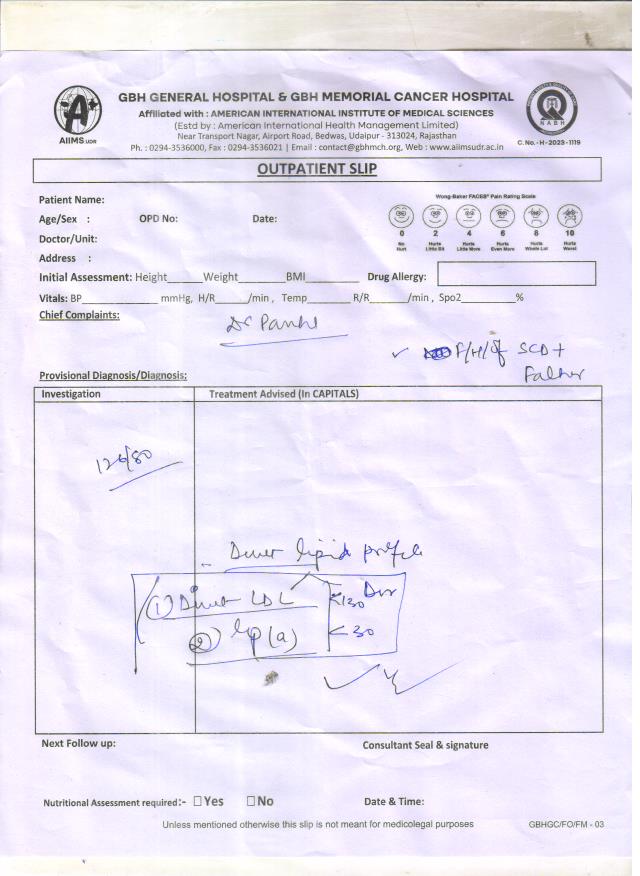 GBH GENERAL HOSPITAL & GBH MEMORIAL CANCER HOSPITAL
Affiliated with : AMERICAN INTERNATIONAL INSTITUTE OF MEDICAL SCIENCES
(Estd by : American International Health Management Limited)
Near Transport Nagar, Airport Road, Bedwas, Udaipur - 313024, Rajasthan
Ph. : 0294-3536000, Fax : 0294-3536021 | Email : contact@gbhmch.org, Web : www.aiimsudr.ac.in
AIIMS UDR
NABH
C. No. - H - 2023 - 1119
OUTPATIENT SLIP
Patient Name:
Age/Sex : OPD No: Date:
Doctor/Unit:
Address :
Wong-Baker FACES® Pain Rating Scale
0 2 4 6 8 10
No Hurt Hurts Little Bit Hurts Little More Hurts Even More Hurts Whole Lot Hurts Worst
Initial Assessment: Height Weight BMI Drug Allergy:
Vitals: BP mmHg, H/R /min , Temp R/R /min , Spo2 %
Chief Complaints:
Dr
F/H/of SCD +
Father
Provisional Diagnosis/Diagnosis:
Investigation Treatment Advised (In CAPITALS)
126/80
Direct lipid profile
(1) Direct LDL <130
(2) lp(a) <30
Next Follow up: Consultant Seal & signature
Nutritional Assessment required:- Yes No Date & Time:
Unless mentioned otherwise this slip is not meant for medicolegal purposes GBHGC/FO/FM - 03